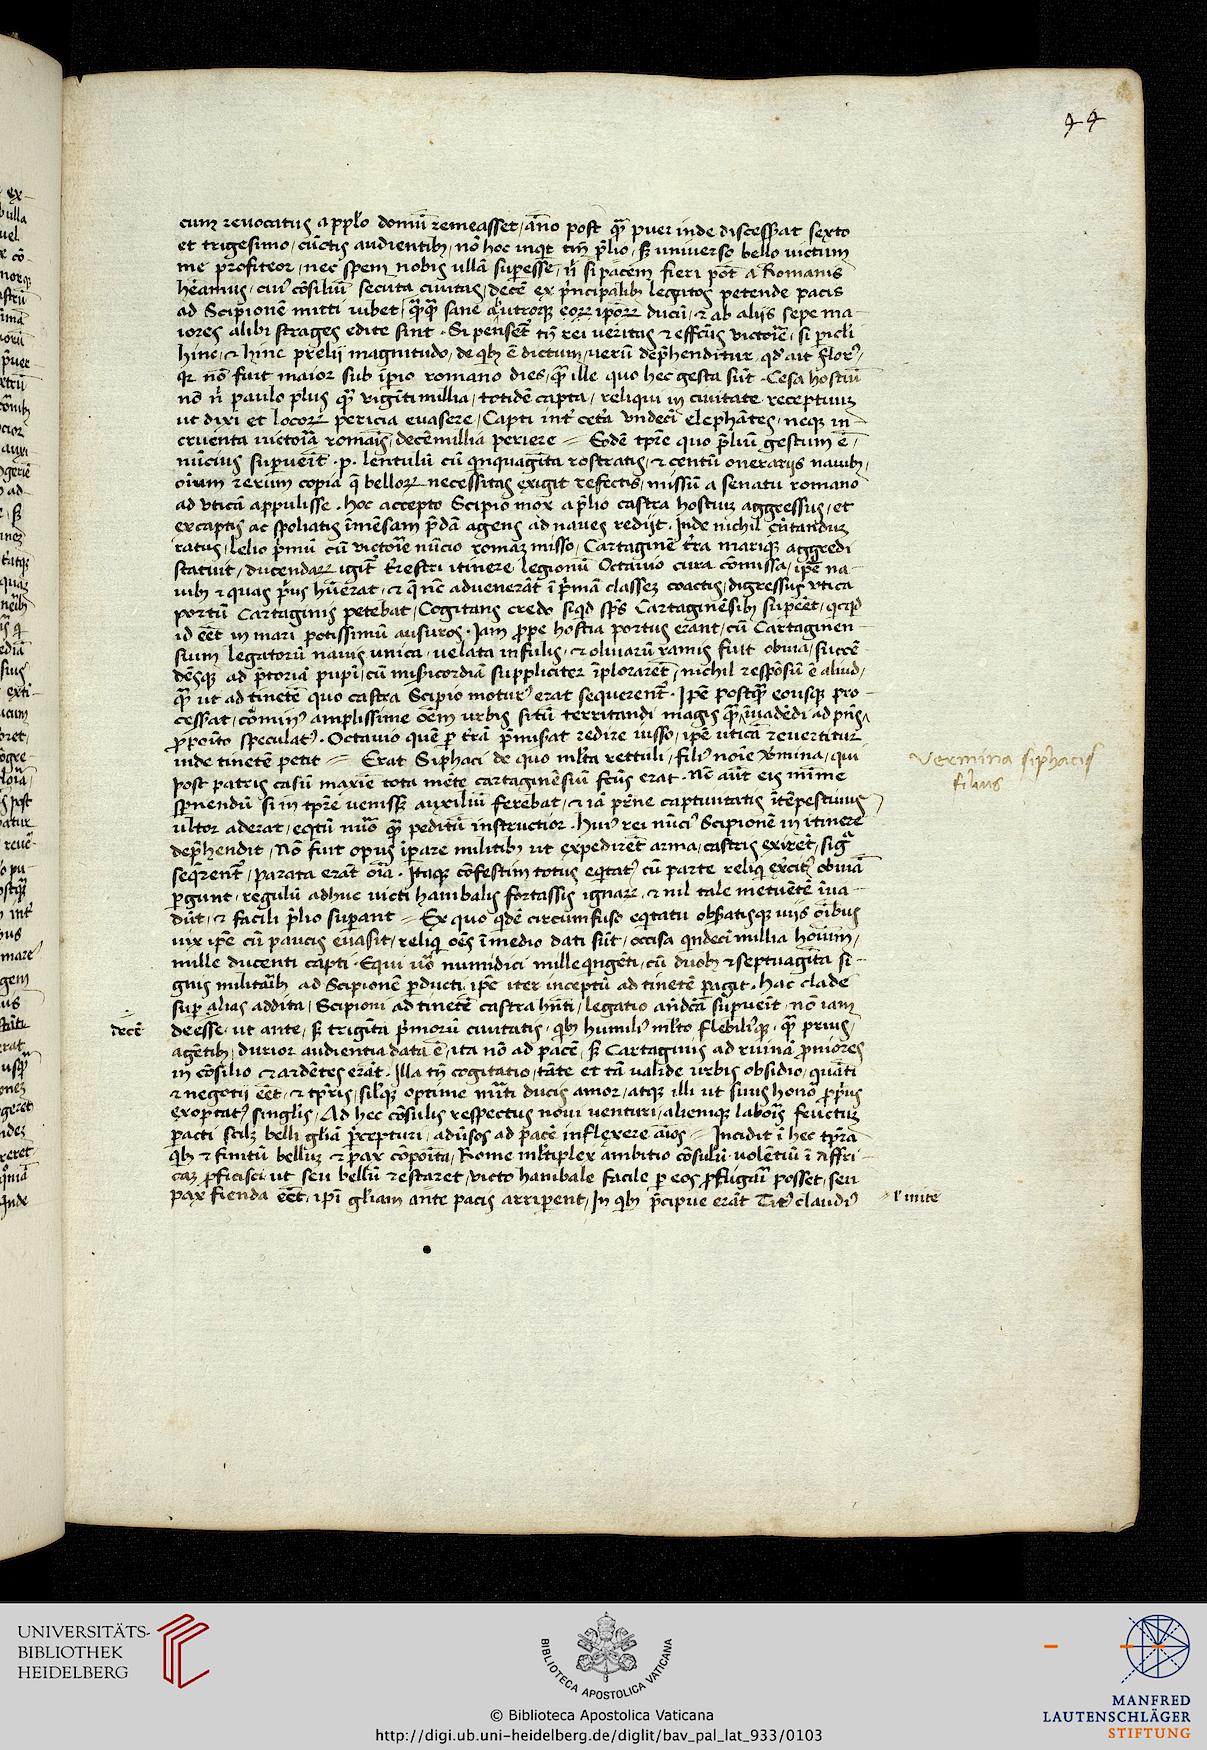 44
cum revocatus a pplo domū remeasset, āno post quā puer inde discesserat sexto
et trigesimo, cūctis audientib, nō hoc inqt tm̄ prelio, sꝫ universo bello victum
me profiteor, nec spem nobis ullā superesse, ni si pacem fieri pōt a Romanis
cui cōsiliū secuta civitas, decē ex principalib legatos petende pacis
ad Scipionē mitti iubet, sane ducū, et ab aliis sepe ma-
iores alibi strages edite sint. Si penset tn̄ rei veritas et effcūs victorie, si picli
hinc, et hinc prelii magnitudo, de qb ē dictum, verū deprehenditur, qd ait florꝰ,
qr nō fuit maior sub īpio romano dies, quā ille quo hec gesta sūt. Cesa hostiū
nō paulo plus quā viginti millia, totidē capta, reliqui in civitate receptum
ut dixi et locorꝝ pericia evasere, Capti int cetā undeci elephātes, neqꝫ in-
cruenta victoria romanis, decē millia periere = Eodē tpre quo preliū gestum ē,
nūcius supuenit. p. lentulū cū qnquaginta rostratis, et centū onerariis navib,
oīum rerum copia q̄ bellorꝝ necessitas exigit refectis, missū a senatu romano
ad uticā appulisse. Hoc accepto Scipio mox a prelio castra hostium aggressus, et
ex captis ac spoliatis īmēsam predā agens ad naves rediit. Inde nichil cūtandum
ratus, lelio primū cū victorie nūcio romaꝫ misso, Cartaginē terra mariqꝫ aggredi
statuit, ducendarꝝ igit terrestri itinere legionū Octavio cura cōmissa, ipse na-
vib et quas prius huerat, et q̄ nūc advenerāt ī primā classeꝫ coactis, digressus utica
portū Cartaginis petebat, Cogitans credo siqd spēs Cartaginēsib supeēt, qcqd
id eēt in mari potissimū ausuros. Iam prope hostia portus erant, cū Cartaginen-
sium legatorū navis unica, velata infulis, et olivarū ramis fuit obvia, succē-
dēsqꝫ ad pretoriā pupī, cū misericordiā suppliciter īploraret, nichil respōsū ē aliud,
quā ut ad tinetē quo castra Scipio moturꝰ erat sequerent. Ipse postquā eousqꝫ pro-
cesserat, cominꝰ amplissime oēm urbis sitū territandi magis quā invadēdi ad pns
proposito speculatꝰ. Octavio quē per trā premiserat redire iusso, ipse uticā revertitur
inde tinetē petit = Erat Siphaci de quo mlta rettuli, filiꝰ noīe vermina, qui
post patris casū maxie tota mēte cartaginēsiū fctus erat. Nec aut eis minime
spnendū si in tpre venisset auxiliū ferebat, et iā pene captivitatis ītēpestivus
ultor aderat, eqtū nūo quā peditū instructior. Huiꝰ rei nūciꝰ Scipionē in itinere
deprehendit, Nō fuit opus īpare militib ut expediret arma, castris exiret, sigā
seqrent, parata erāt oīa. Itaqꝫ cōfestim totus eqtatꝰ cū parte reliq exercitꝰ obviā
pgunt, regulū adhuc victi hanibalis fortassis ignarꝝ, et nil tale metuētē īva-
dūt, et facili prelio superant = Ex quo qdē circumfuso eqtatu obseratisqꝫ viis oībus
vix ipe cū paucis evasit, reliq oēs ī medio dati sūt, occisa qndeci millia hoīum,
mille ducenti capti. Equi vero numidici mille qngēti, cū duob et septuaginta si-
gnis militarib ad Scipionē perducti, ipe iter inceptū ad tinetē pagit. Hac clade
super alias addita, Scipioni ad tinetē castra hnti, legatio supvenit, nō iam
deesse ut ante, sꝫ triginta primorū civitatis, qb humiliꝰ mlto flebiliꝰqꝫ, quā prius,
agētib, durior audientia data ē, ita nō ad pacē, sꝫ Cartaginis ad ruinā proniores
in cōsilio et ardētes erāt. Illa tn̄ cogitatio, tāte et tā valide urbis obsidio, quāti
et negotii eēt, et tpris, silqꝫ optime mriti ducis amor, atqꝫ illi ut suus honor proprius
exoptatꝰ singlis, Ad hec cōsulis respectus novi venturi, alienique laboris fructum
pacti scilꝫ belli gliā prerepturi, adūsos ad pacē inflexere aīos = Incidit ī hec tpra
qb et finitū bellum et pax cōposita, Rome mltiplex ambitio cōsulū volētiū ī Affri-
cam proficisci ut seu bellū restaret, victo hanibale facile per eos profligari posset, seu
pax fienda eēt, ipi gliam ante pacis arriperent, In qb precipue erāt Titꝰ claudiꝰ
Vermina siphacis
filius
decē
l' mite
UNIVERSITÄTS-
BIBLIOTHEK
HEIDELBERG
BIBLIOTECA APOSTOLICA VATICANA
© Biblioteca Apostolica Vaticana
http://digi.ub.uni-heidelberg.de/diglit/bav_pal_lat_933/0103
MANFRED
LAUTENSCHLÄGER
STIFTUNG